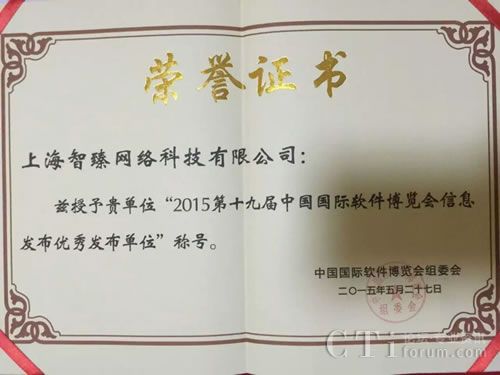 荣誉证书
上海智臻网络科技有限公司：
兹授予贵单位“2015第十九届中国国际软件博览会信息
发布优秀发布单位”称号。
中国国际软件博览会组委会
二〇一五年五月二十七日
组委会
CTi
forum.com